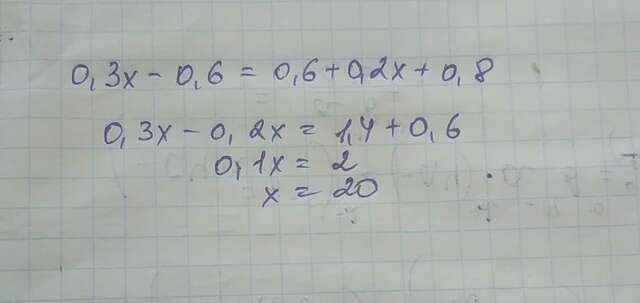 0,3x - 0,6 = 0,6 + 0,2x + 0,8
0,3x - 0,2x = 1,4 + 0,6
0,1x = 2
x = 20